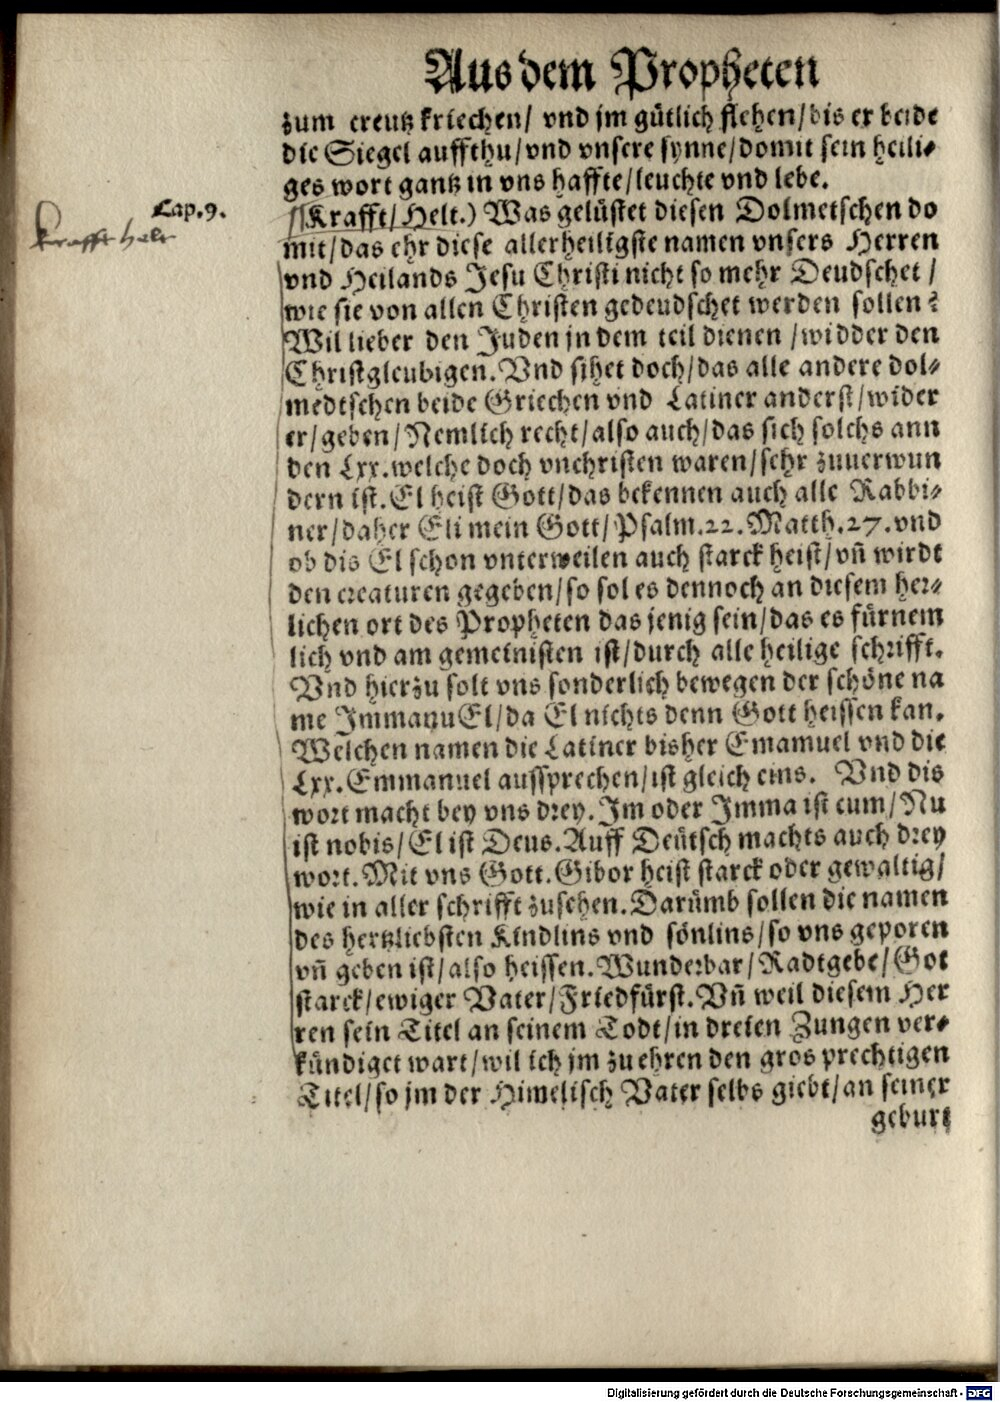 Aus dem Propheten
zum creutz kriechen/ vnd jm gütlich flehen/bis er beide
die Siegel auffthu/vnd vnsere synne/domit sein heili⸗
ges wort gantz in vns haffte/leuchte vnd lebe.
Cap.9.
Krafft helt
(Krafft/Helt.) Was gelüstet diesen Dolmetschen do
mit/das ehr diese allerheiligste namen vnsers Herren
vnd Heilands Jesu Christi nicht so mehr Deudschet/
wie sie von allen Christen gedeudschet werden sollen?
Wil lieber den Juden in dem teil dienen/widder den
Christgleubigen.Vnd sihet doch/das alle andere dol⸗
medtschen beide Griechen vnd Latiner anderst/wider
er/geben/Nemlich recht/also auch/das sich solchs ann
den Lxx.welche doch vnchristen waren/sehr zuuerwun
dern ist.El heist Gott/das bekennen auch alle Rabbi⸗
ner/daher Eli mein Gott/Psalm.22.Matth.27.vnd
ob dis El schon vnterweilen auch starck heist/vn̄ wirdt
den creaturen gegeben/so sol es dennoch an diesem her⸗
lichen ort des Propheten das jenig sein/das es fürnem
lich vnd am gemeinisten ist/durch alle heilige schrifft.
Vnd hierzu solt vns sonderlich bewegen der schöne na
me ImmanuEl/da El nichts denn Gott heissen kan.
Welchen namen die Latiner bisher Emamuel vnd die
Lxx.Emmanuel aussprechen/ist gleich eins. Vnd dis
wort macht bey vns drey.Im oder Imma ist cum/Nu
ist nobis/El ist Deus.Auff Deütsch machts auch drey
wort.Mit vns Gott.Gibor heist starck oder gewaltig/
wie in aller schrifft zusehen.Darümb sollen die namen
des hertzliebsten Kindlins vnd sönlins/so vns geporen
vn̄ geben ist/also heissen.Wunderbar/Radtgebe/Got
starck/ewiger Vater/Friedfürst.Vn̄ weil diesem Her
ren sein Titel an seinem Todt/in dreien Zungen ver⸗
kündiget wart/wil ich jm zu ehren den gros prechtigen
Titel/so jm der Himelisch Vater selbs giebt/an seiner
geburt
Digitalisierung gefördert durch die Deutsche Forschungsgemeinschaft - DFG